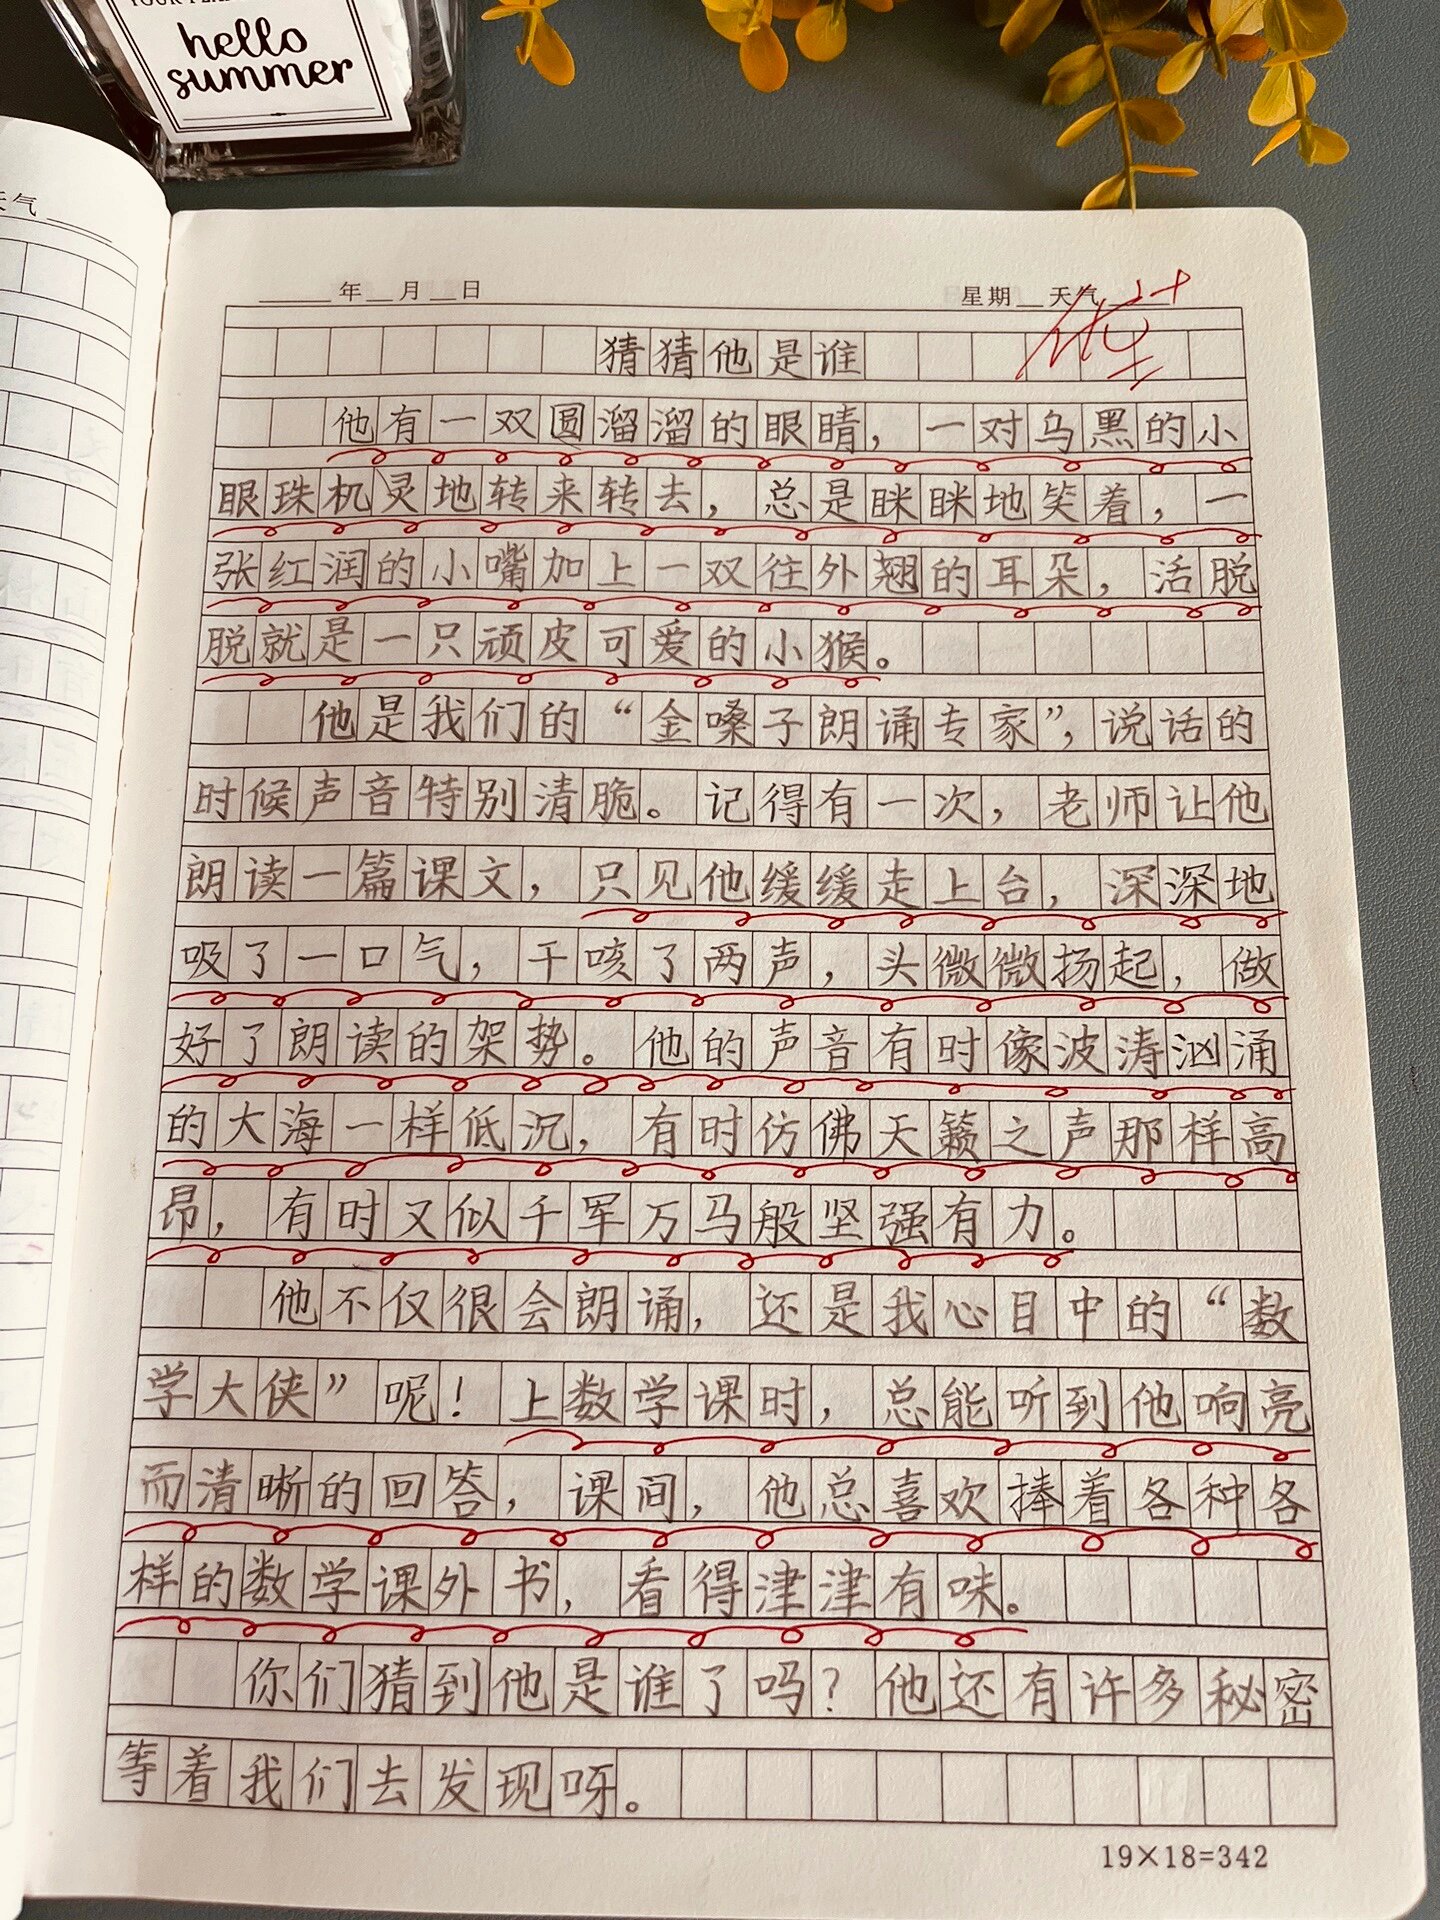 hello
summer
天气
年 月 日 星期 天气
优++
猜猜他是谁
他有一双圆溜溜的眼睛，一对乌黑的小
眼珠机灵地转来转去，总是眯眯地笑着，一
张红润的小嘴加上一双往外翘的耳朵，活脱
脱就是一只顽皮可爱的小猴。
他是我们的“金嗓子朗诵专家”，说话的
时候声音特别清脆。记得有一次，老师让他
朗读一篇课文，只见他缓缓走上台，深深地
吸了一口气，干咳了两声，头微微扬起，做
好了朗读的架势。他的声音有时像波涛汹涌
的大海一样低沉，有时仿佛天籁之声那样高
昂，有时又似千军万马般坚强有力。
他不仅很会朗诵，还是我心目中的“数
学大侠”呢！上数学课时，总能听到他响亮
而清晰的回答，课间，他总喜欢捧着各种各
样的数学课外书，看得津津有味。
你们猜到他是谁了吗？他还有许多秘密
等着我们去发现呀。
19×18=342